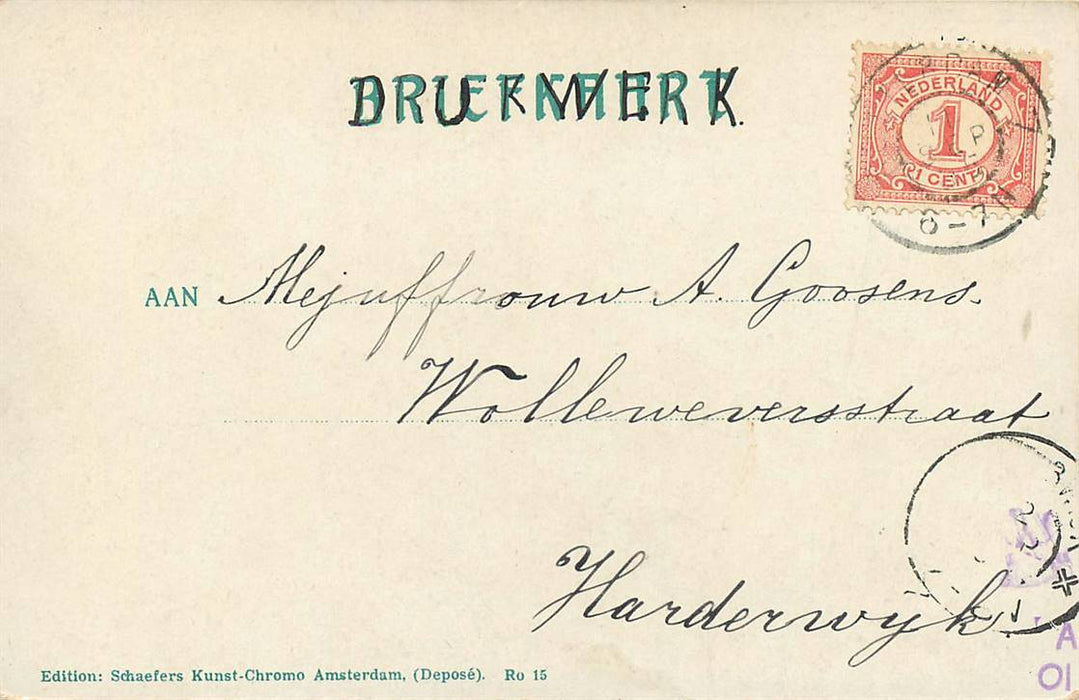 DRUKWERK.
NEDERLAND
1
1 CENT
6-7N
AAN Mejuffrouw A. Goosens.
Wolleweversstraat
Harderwyk
Edition: Schaefers Kunst-Chromo Amsterdam, (Deposé). Ro 15